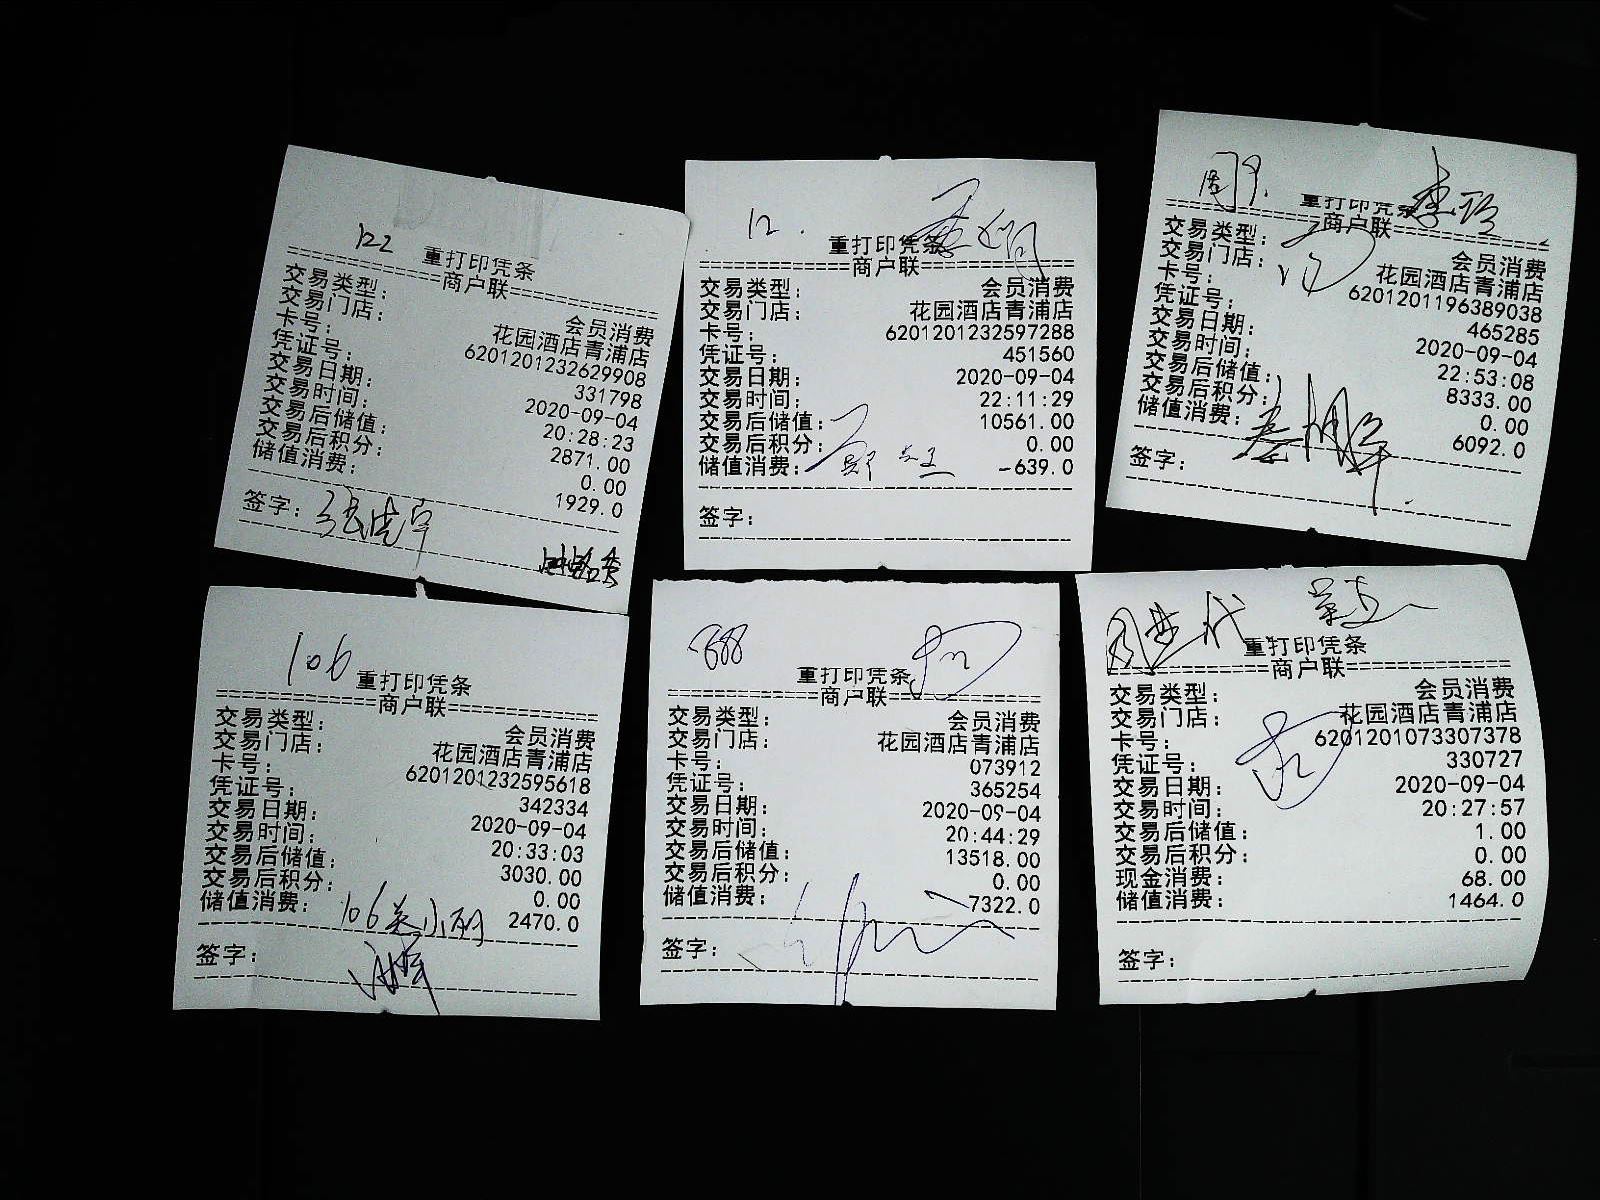 122
重打印凭条
==========商户联==========
交易类型: 会员消费
交易门店: 花园酒店青浦店
卡号: 6201201232629908
凭证号: 331798
交易日期: 2020-09-04
交易时间: 20:28:23
交易后储值: 2871.00
交易后积分: 0.00
储值消费: 1929.0
签字:
12.
重打印凭条
==========商户联==========
交易类型: 会员消费
交易门店: 花园酒店青浦店
卡号: 6201201232597288
凭证号: 451560
交易日期: 2020-09-04
交易时间: 22:11:29
交易后储值: 10561.00
交易后积分: 0.00
储值消费: -639.0
签字:
重打印凭条
==========商户联==========
交易类型: 会员消费
交易门店: 花园酒店青浦店
卡号: 6201201196389038
凭证号: 465285
交易日期: 2020-09-04
交易时间: 22:53:08
交易后储值: 8333.00
交易后积分: 0.00
储值消费: 6092.0
签字:
106
重打印凭条
==========商户联==========
交易类型: 会员消费
交易门店: 花园酒店青浦店
卡号: 6201201232595618
凭证号: 342334
交易日期: 2020-09-04
交易时间: 20:33:03
交易后储值: 3030.00
交易后积分: 0.00
储值消费: 2470.0
106
签字:
888
重打印凭条
==========商户联==========
交易类型: 会员消费
交易门店: 花园酒店青浦店
卡号: 073912
凭证号: 365254
交易日期: 2020-09-04
交易时间: 20:44:29
交易后储值: 13518.00
交易后积分: 0.00
储值消费: 7322.0
签字:
重打印凭条
==========商户联==========
交易类型: 会员消费
交易门店: 花园酒店青浦店
卡号: 6201201073307378
凭证号: 330727
交易日期: 2020-09-04
交易时间: 20:27:57
交易后储值: 1.00
交易后积分: 0.00
现金消费: 68.00
储值消费: 1464.0
签字: